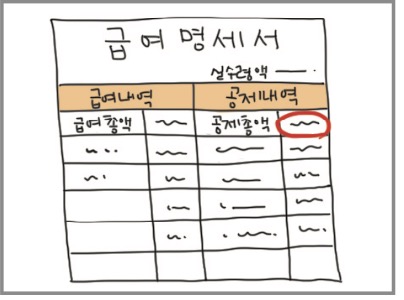 급여명세서
실수령액
급여내역 공제내역
급여총액 공제총액